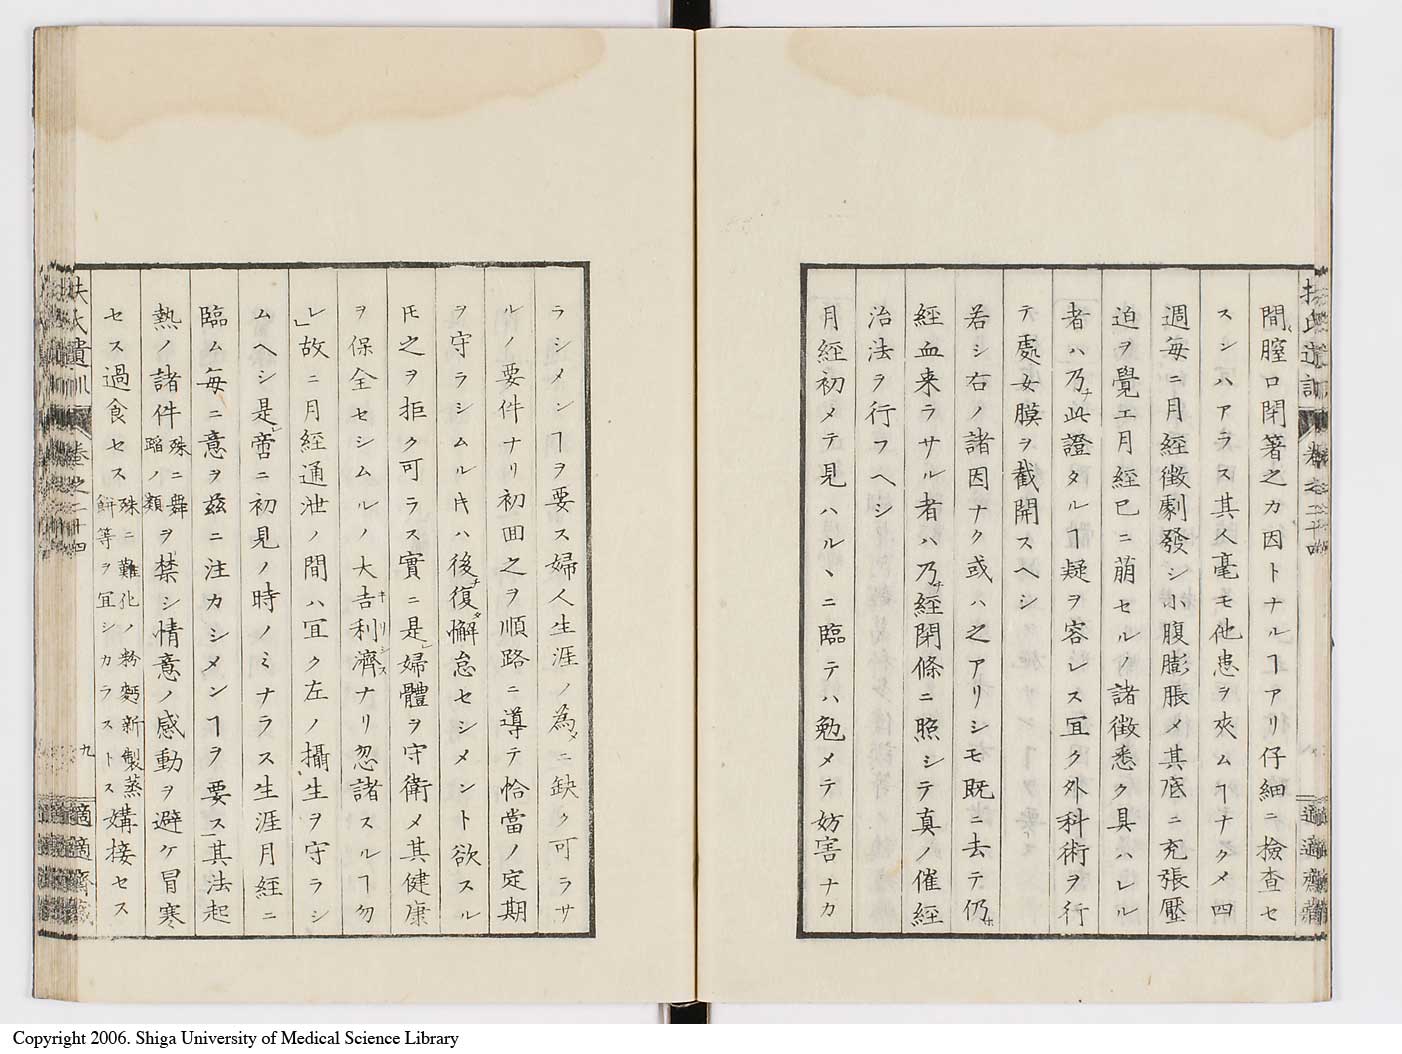 間膣口閉著之カ因トナルヿアリ仔細ニ檢查セ
スンハアラス其人毫モ他患ヲ夾ムヿナクメ四
週每ニ月經徵劇發シ小腹膨脹メ其底ニ充張壓
迫ヲ覺エ月經已ニ萠セルノ諸徵悉ク具ハレル
者ハ乃チ此證タルヿ疑ヲ容レス冝ク外科術ヲ行
テ處女膜ヲ截開スヘシ
若シ右ノ諸因ナク或ハ之アリシモ既ニ去テ仍ホ
經血来ラサル者ハ乃チ經閉條ニ照シテ真ノ催經
治法ヲ行フヘシ
月經初メテ見ハルヽニ臨テハ勉メテ妨害ナカ
ラシメンヿヲ要ス婦人生涯ノ為メニ缺ク可ラサ
ルノ要件ナリ初囬之ヲ順路ニ導テ恰當ノ定期
ヲ守ラシムル𪜈ハ後復タ懈怠セシメント欲スル
𪜈之ヲ拒ク可ラス實ニ是レ婦體ヲ守衛メ其健康
ヲ保全セシムルノ大吉利濟ナリ忽諸スルヿ勿
レ故ニ月經通泄ノ間ハ冝ク左ノ攝生ヲ守ラシ
ムヘシ是レ啻ニ初見ノ時ノミナラス生涯月經ニ
臨ム每ニ意ヲ茲ニ注カシメンヿヲ要ス其法起
熱ノ諸件殊ニ舞蹈ノ類ヲ禁シ情意ノ感動ヲ避ケ冒寒
セス過食セス殊ニ難化ノ粉麪新製蒸餅等ヲ冝シカラストス媾接セス
扶氏遺訓
卷之二十四
九
適適齋藏
Copyright 2006. Shiga University of Medical Science Library